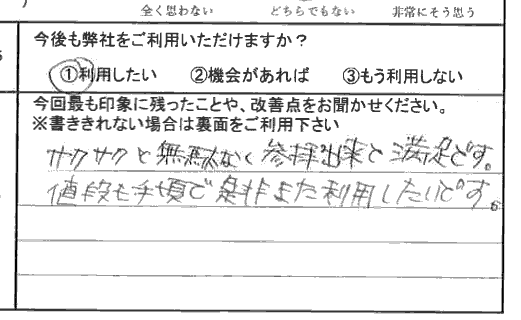 全く思わない どちらでもない 非常にそう思う
今後も弊社をご利用いただけますか？
①利用したい ②機会があれば ③もう利用しない
今回最も印象に残ったことや、改善点をお聞かせください。
※書ききれない場合は裏面をご利用下さい
サクサクと無駄なく参拝出来と満足です。
値段も手頃で是非また利用したいです。